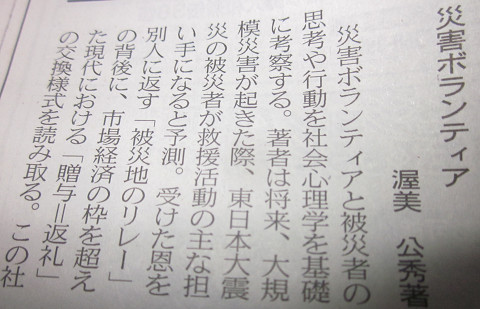 災害ボランティア
渥美 公秀著
災害ボランティアと被災者の
思考や行動を社会心理学を基礎
に考察する。著者は将来、大規
模災害が起きた際、東日本大震
災の被災者が救援活動の主な担
い手になると予測。受けた恩を
別人に返す「被災地のリレー」
の背後に、市場経済の枠を超え
た現代における「贈与＝返礼」
の交換様式を読み取る。この社